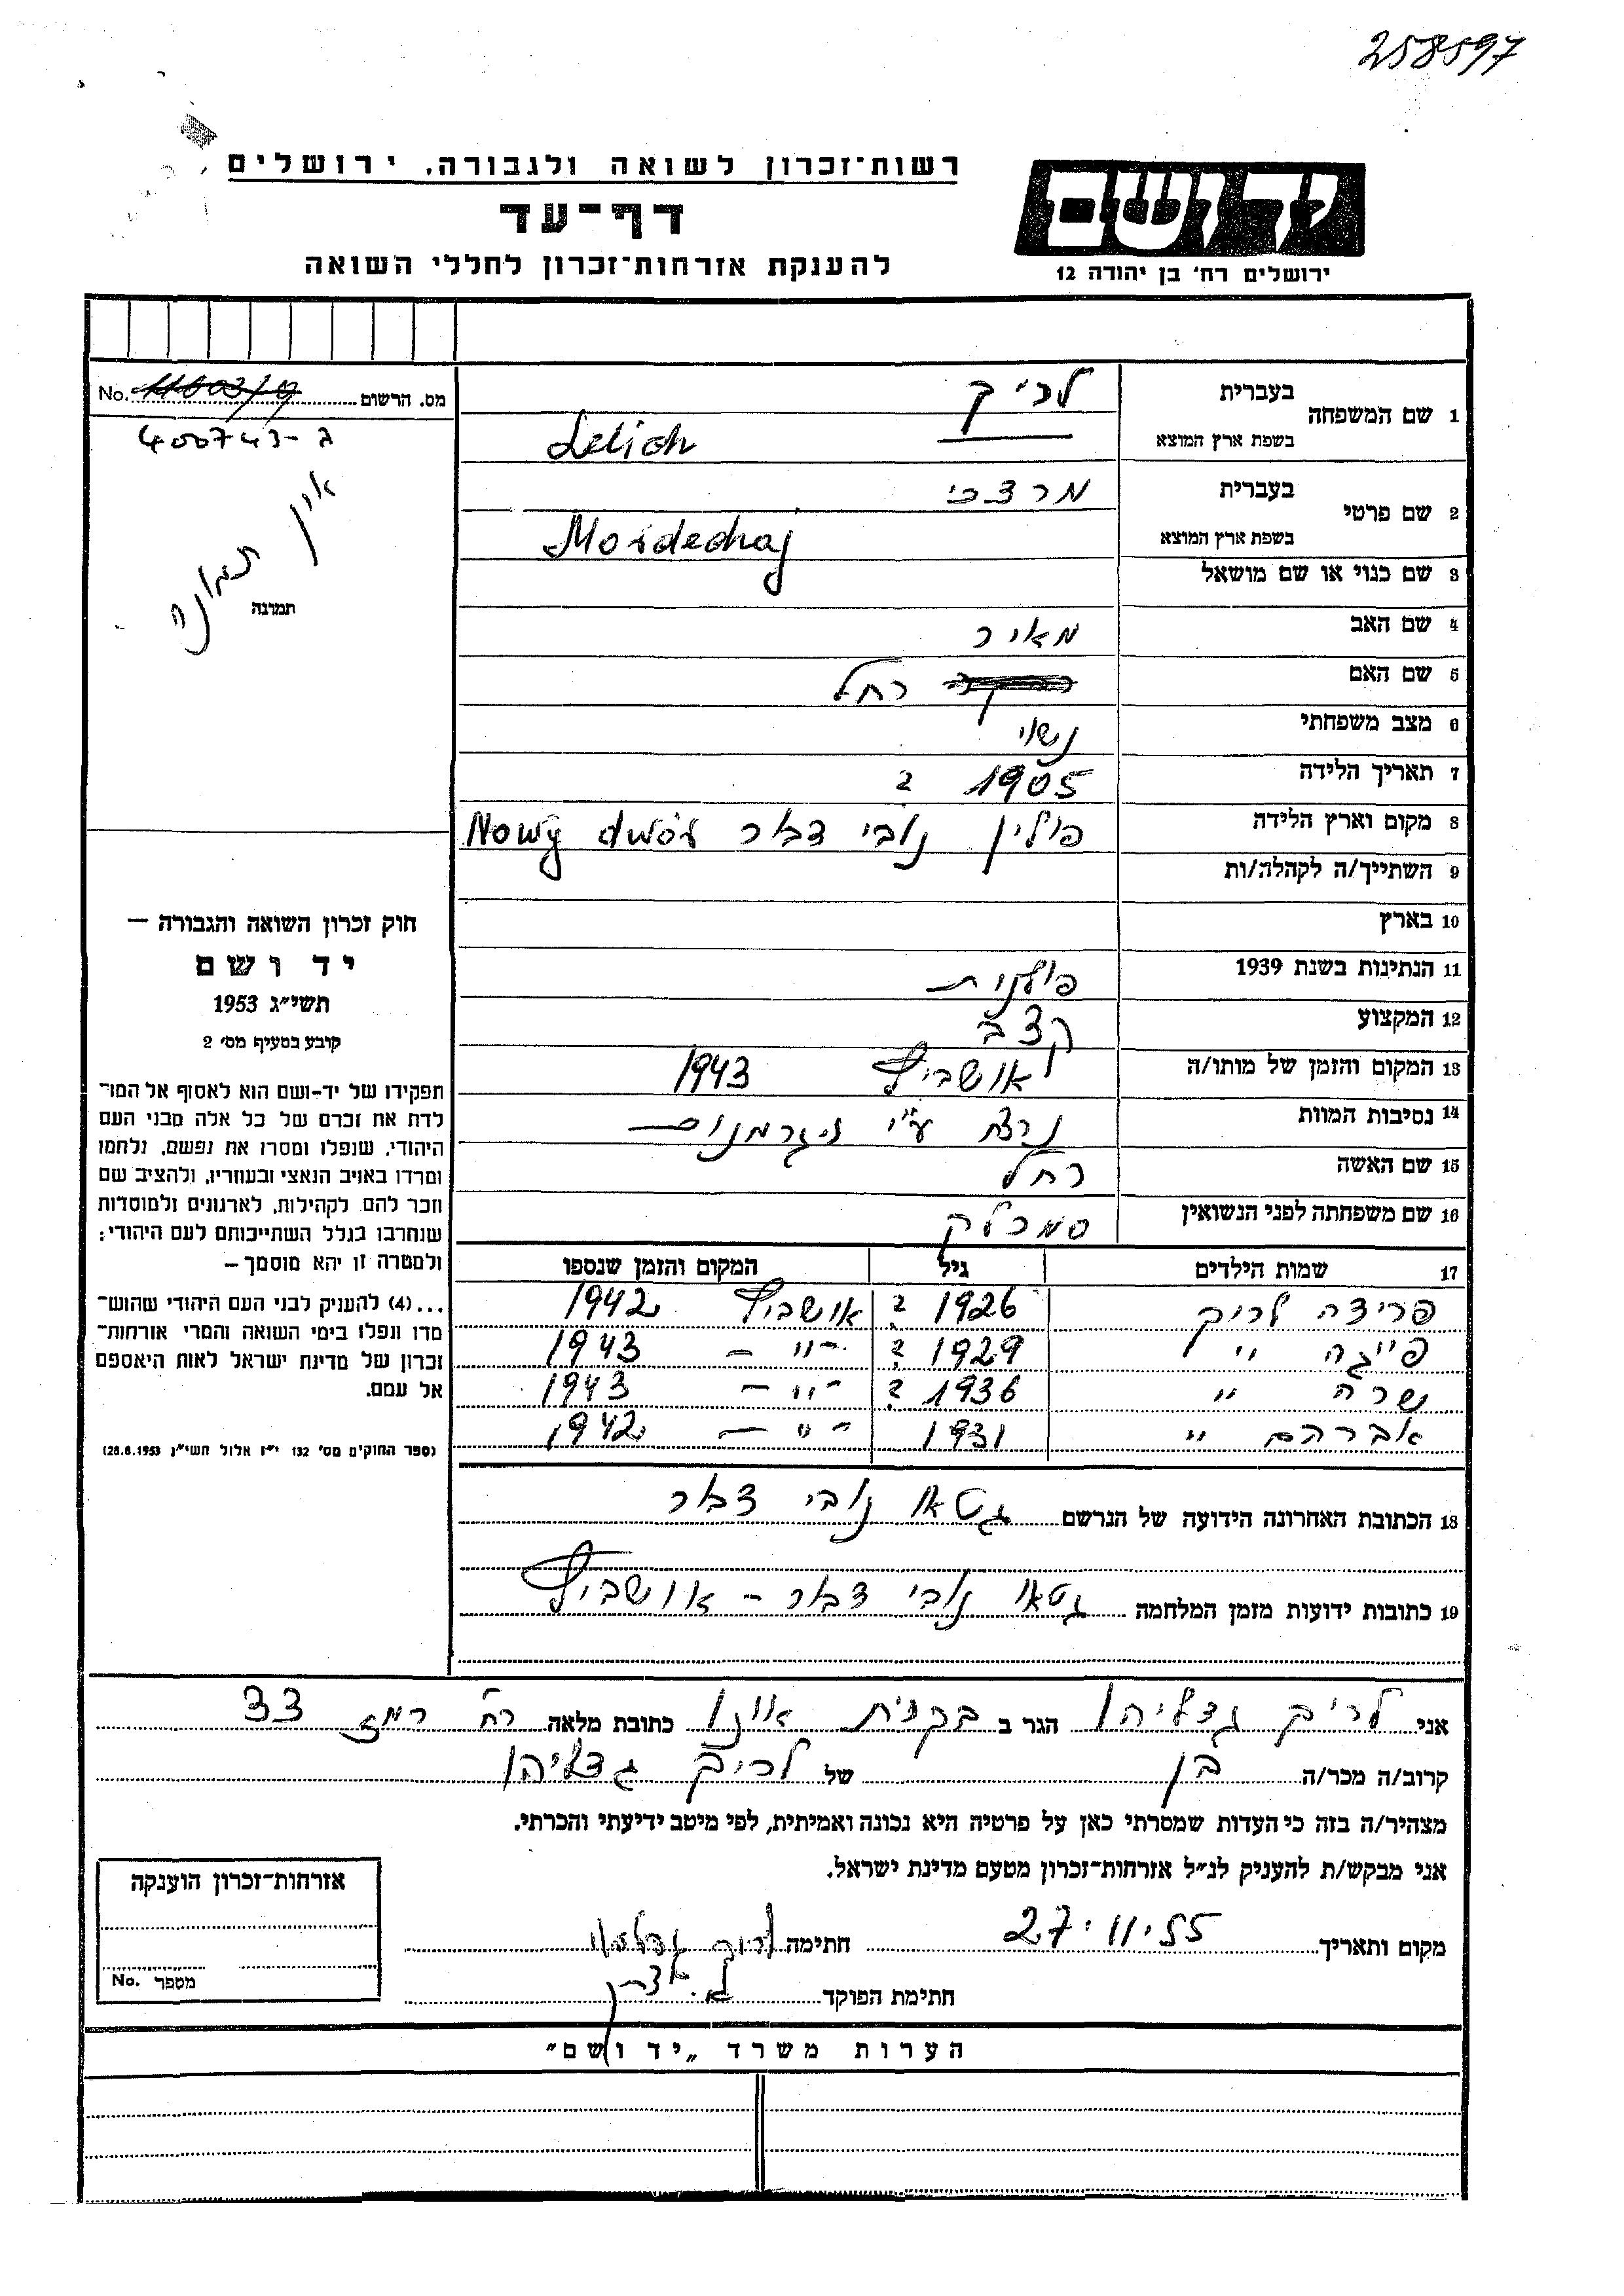 258597
רשות-זכרון לשואה ולגבורה, ירושלים
יד ושם
דף-עד
להענקת אזרחות-זכרון לחללי השואה
ירושלים רח' בן יהודה 12
מס. הרשום No.
ג-400743
אין תמונה
תמונה
1 שם המשפחה
בעברית לריך
בשפת ארץ המוצא
2 שם פרטי
בעברית מרדכי
בשפת ארץ המוצא
3 שם כנוי או שם מושאל
4 שם האב מאיר
5 שם האם רחל
6 מצב משפחתי נשוי
7 תאריך הלידה 1905 ?
8 מקום וארץ הלידה פולין נובי דבור Nowy dwór
9 השתייך/ה לקהלה/ות
10 בארץ
11 הנתינות בשנת 1939 פולנית
12 המקצוע קצב
13 המקום והזמן של מותו/ה אושביץ 1943
14 נסיבות המוות נרצח ע"י הגרמנים
15 שם האשה רחל
16 שם משפחתה לפני הנשואין
17 שמות הילדים גיל המקום והזמן שנספו
פרידה לריך 1926 ? אושביץ 1942
פייגה " 1929 ? -"- 1943
שרה " 1936 ? -"- 1943
אברהם " 1931 -"- 1942
חוק זכרון השואה והגבורה —
יד ושם
תשי"ג 1953
קובע בסעיף מס' 2
תפקידו של יד-ושם הוא לאסוף אל המו־
לדת את זכרם של כל אלה מבני העם
היהודי, שנפלו ומסרו את נפשם, נלחמו
ומרדו באויב הנאצי ובעוזריו, ולהציב שם
וזכר להם לקהילות, לארגונים ולמוסדות
שנחרבו בגלל השתייכותם לעם היהודי;
ולמטרה זו יהא מוסמך —
...(4) להעניק לבני העם היהודי שהוש־
מדו ונפלו בימי השואה והמרי אזרחות־
זכרון של מדינת ישראל לאות היאספם
אל עמם.
(ספר החוקים מס' 132 י"ז אלול תשי"ג 28.8.1953)
18 הכתובת האחרונה הידועה של הנרשם גטאו נובי דבור
19 כתובות ידועות מזמן המלחמה גטאו נובי דבור - אושביץ
אני לריך גדליהו הגר ב בקרית אונו כתובת מלאה רח' רמז 33
קרוב/ה מכר/ה בן של לריך גדליהו
מצהיר/ה בזה כי העדות שמסרתי כאן על פרטיה היא נכונה ואמיתית, לפי מיטב ידיעתי והכרתי.
אני מבקש/ת להעניק לנ"ל אזרחות-זכרון מטעם מדינת ישראל.
מקום ותאריך 27.11.55 חתימה לריך גדליהו
חתימת הפוקד
אזרחות-זכרון הוענקה
מספר No.
הערות משרד "יד ושם"